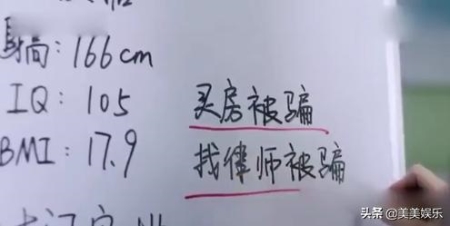 身高：166cm
IQ：105
BMI：17.9
买房被骗
找律师被骗
头条 @美美娱乐